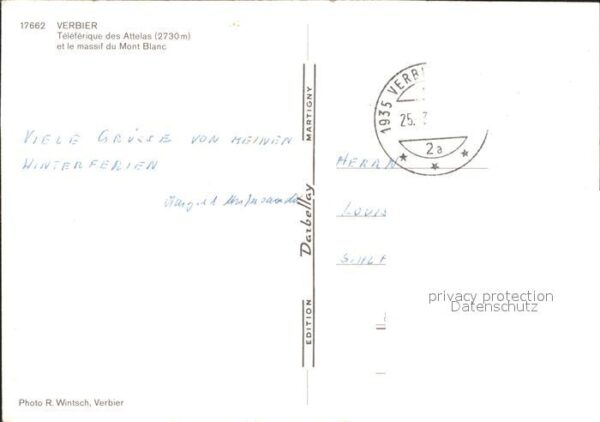 17662 VERBIER
Téléférique des Attelas (2730 m)
et le massif du Mont Blanc
VIELE GRÜSSE VON MEINEN
WINTERFERIEN
EDITION Darbellay MARTIGNY
1935 VERBIER
25.
2a
HERRN
LOUIS
privacy protection
Datenschutz
Photo R. Wintsch, Verbier